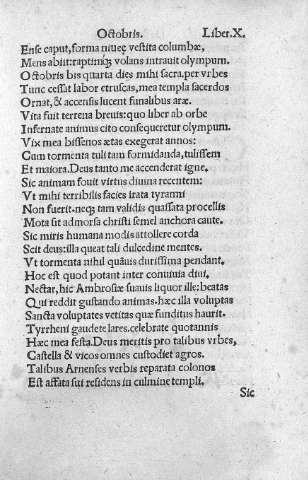 Octobris. Liber.X.
Ense caput, forma niueę vestita columbæ,
Mens abiit: raptimq́; volans intrauit olympum.
Octobris bis quarta dies mihi sacra. per vrbes
Tunc cessat labor etruscas, mea templa sacerdos
Ornat, & accensis lucent funalibus aræ.
Vita fuit terrena breuis: quo liber ab orbe
Infernate animus cito consequeretur olympum.
Vix mea bissenos ætas exegerat annos:
Cum tormenta tuli tam formidanda, tulissem
Et maiora. Deus tanto me accenderat igne.
Sic animam fouit virtus diuina recentem:
Vt mihi terribilis facies irata tyranni
Non fuerit. neq; tam validis quassata procellis
Mota sit admorsa christi semel anchora caute.
Sic miris humana modis attollere corda
Scit deus: illa queat tali dulcedine mentes.
Vt tormenta nihil quāuis durissima pendant,
Hoc est quod potant inter conuiuia diui,
Nectar, hic Ambrosiæ suauis liquor ille: beatas
Qui reddit gustando animas. hæc illa voluptas
Sancta voluptates vetitas quæ funditus haurit.
Tyrrheni gaudete lares. celebrate quotannis
Hæc mea festa. Deus meritis pro talibus vrbes,
Castella & vicos omnes custodiet agros.
Talibus Arnenses verbis reparata colonos
Est affata sui residens in culmine templi.
Sic